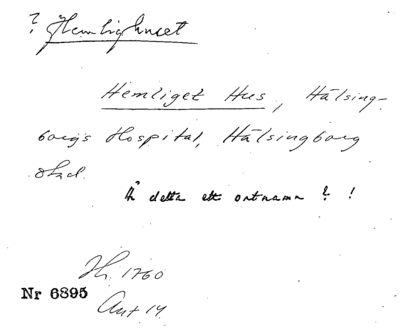 ? Hemlighuset
Hemliget Hus, Hälsing-
borgs Hospital, Hälsingborg
stad.
Är detta ett ortnamn ? !
Jb. 1760
Nr 6895
Ant 14